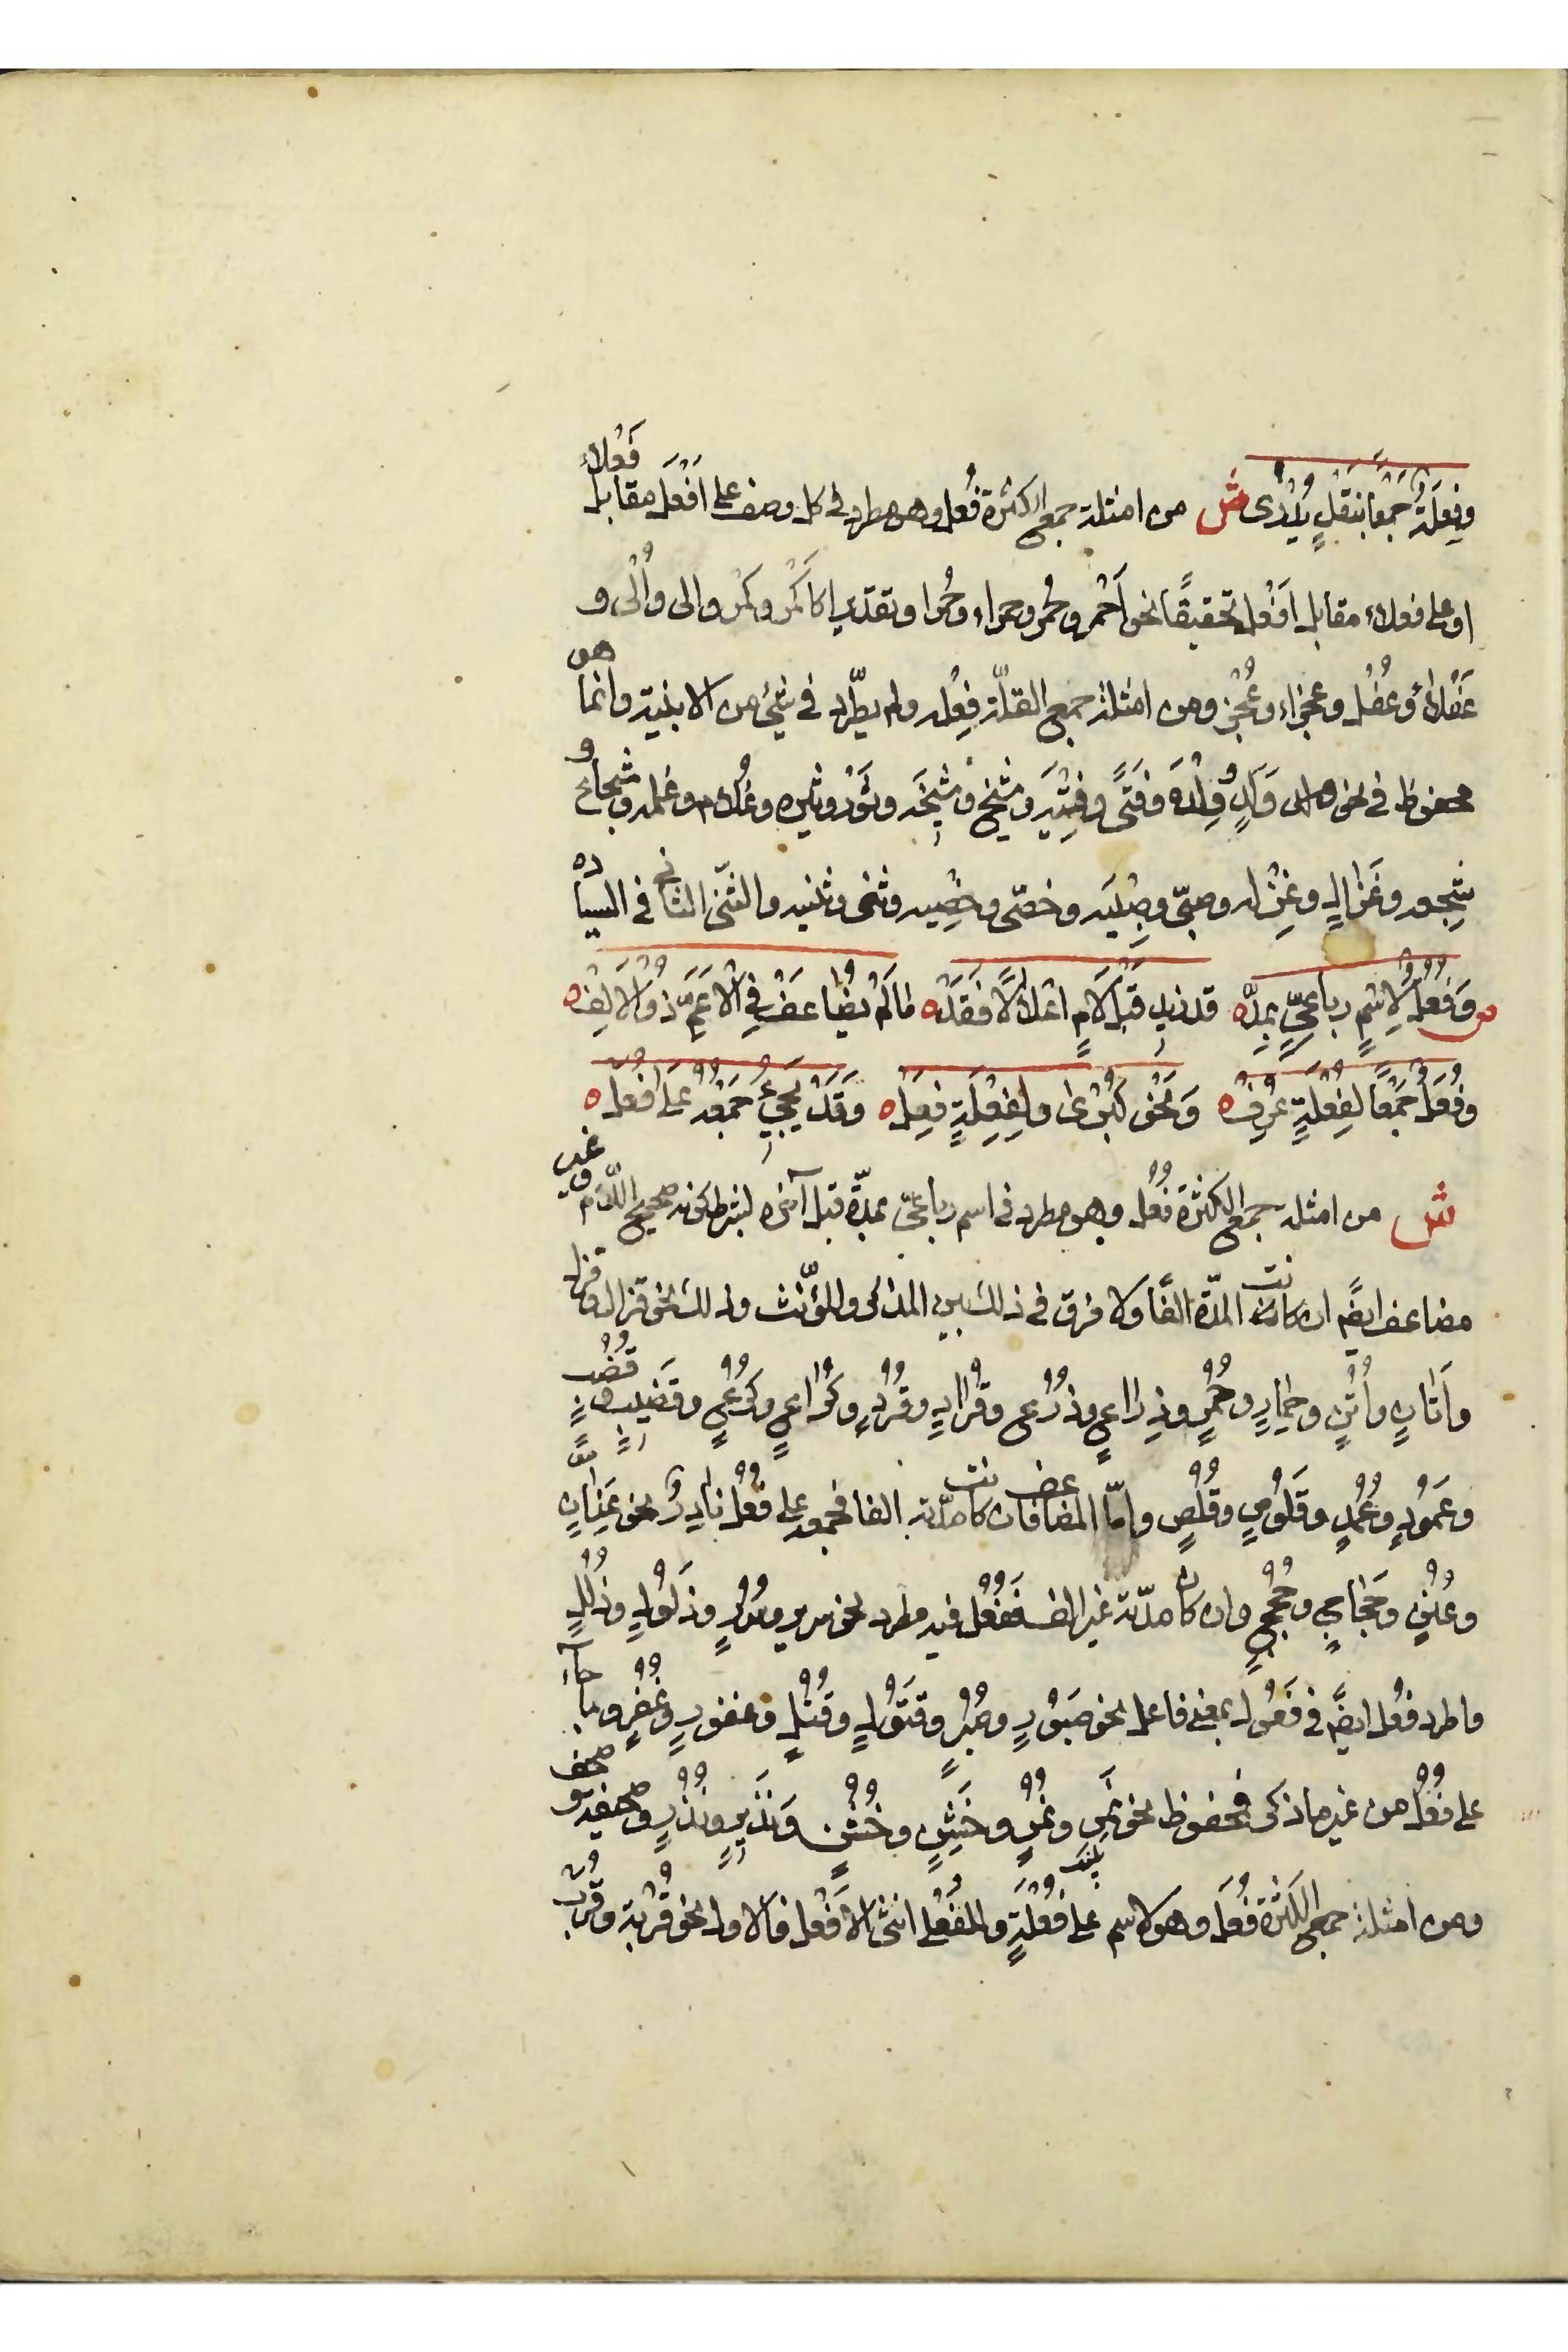 وفِعْلَةٌ جَمْعًا بنَقْلٍ يُدْرَى ش من امثلة جمع الكثرة فُعل وهو مطرد فى كل وصف على اَفْعَل مقابل فَعْلاء
او على فعلاء مقابل اَفْعل تحقيقًا نحو اَحْمر وحُمْر وحمراء وحُمْر او تقديرا كاَكْمَر وكُمْر والى واُلْى و
عَفْلاءُ وعُفْل وعجزاء وعُجْز ومن امثلة جمع القلّة فِعْله ولم يطّرد فى شئ من الابنية وانما هو
محفوظ فى نحو وَلَدٍ وِلْدَه وفَتًى وفِتْيَه وشَيْخ وشِيْخَه وثَوْر وثيره وغُلام وغلمه وشجاع و
شِجعه وغَزَالٍ وغِزْله وصبىّ وصِبْيَه وخصّى وخِصْيه وثنى وثنيه والثّنى الثانى فى السياده
ص وَفُعُلٌ لاِسْمٍ رباعىٍّ بمدّه قد زيد قَبْلَ لاَمٍ اعْلاَلًا فَقَدْه مَا لَمْ يُضَاعَفْ فِى الاَعَمِّ ذُو الاَلِفْ ه
وفُعَلٌ جَمْعًا لفُعْلَةٍ عُرِفْ ه وَنَحْو كُبْرى ولفِعْلَةٍ فِعَلْ ه وَقَدْ يَجِئُ جَمْعُهُ عَلَى فُعَلْ ه
ش من امثلة جمع الكثرة فُعُل وهو مطرد فى اسم رباعىّ بمدّة قبل آخره بشرط كونه صحيح اللام وغير
مضاعف ايضً ان كانت المدّة الفًا ولا فرق فى ذلك بين المذكر والمؤنّث وذلك نحو قزال وقزل
واَتَانٍ واُتُنٍ وحِمَارٍ وحُمُرٍ وذِرَاعٍ وذُرُعٍ وقُرَادٍ وقُرُدٍ وكُرَاعٍ وكُرُعٍ وقَضيبٍ وقُضُبٍ
وعَمُودٍ وعُمُدٍ وقَلُوصٍ وقُلُصٍ وامّا المضاعف ان كانت مدّته الفا فجمعه على فُعُل نادِرٌ نحو عِنَانٍ
وعُنُنٍ وحَجَاجٍ وحُجُجٍ وان كان مدّته غير الف ففُعُل فيه مطرد نحو سرير وسُرُرٍ وذَلُولٍ وذُلُلٍ
واطرد فُعُل ايضً فى فَعُول بمعنى فاعل نحو صَبُورٍ وصُبُرٍ وقَتُولٍ وقُتُلٍ وغفورٍ وغُفُرٍ وما جآء
على فُعُل من غير ما ذكر فمحفوظ نحو نَمِر ونُمُرٍ وخَشِنٍ وخُشُنٍ ونَذيرٍ ونُذُرٍ وصحيفة وصحف
ومن امثلة جمع الكثرة فُعَل وهو لاسم على فُعْلَةٍ والفُعْلى انثى الاَفْعل فالاول نحو قُرْبة وقُرَب